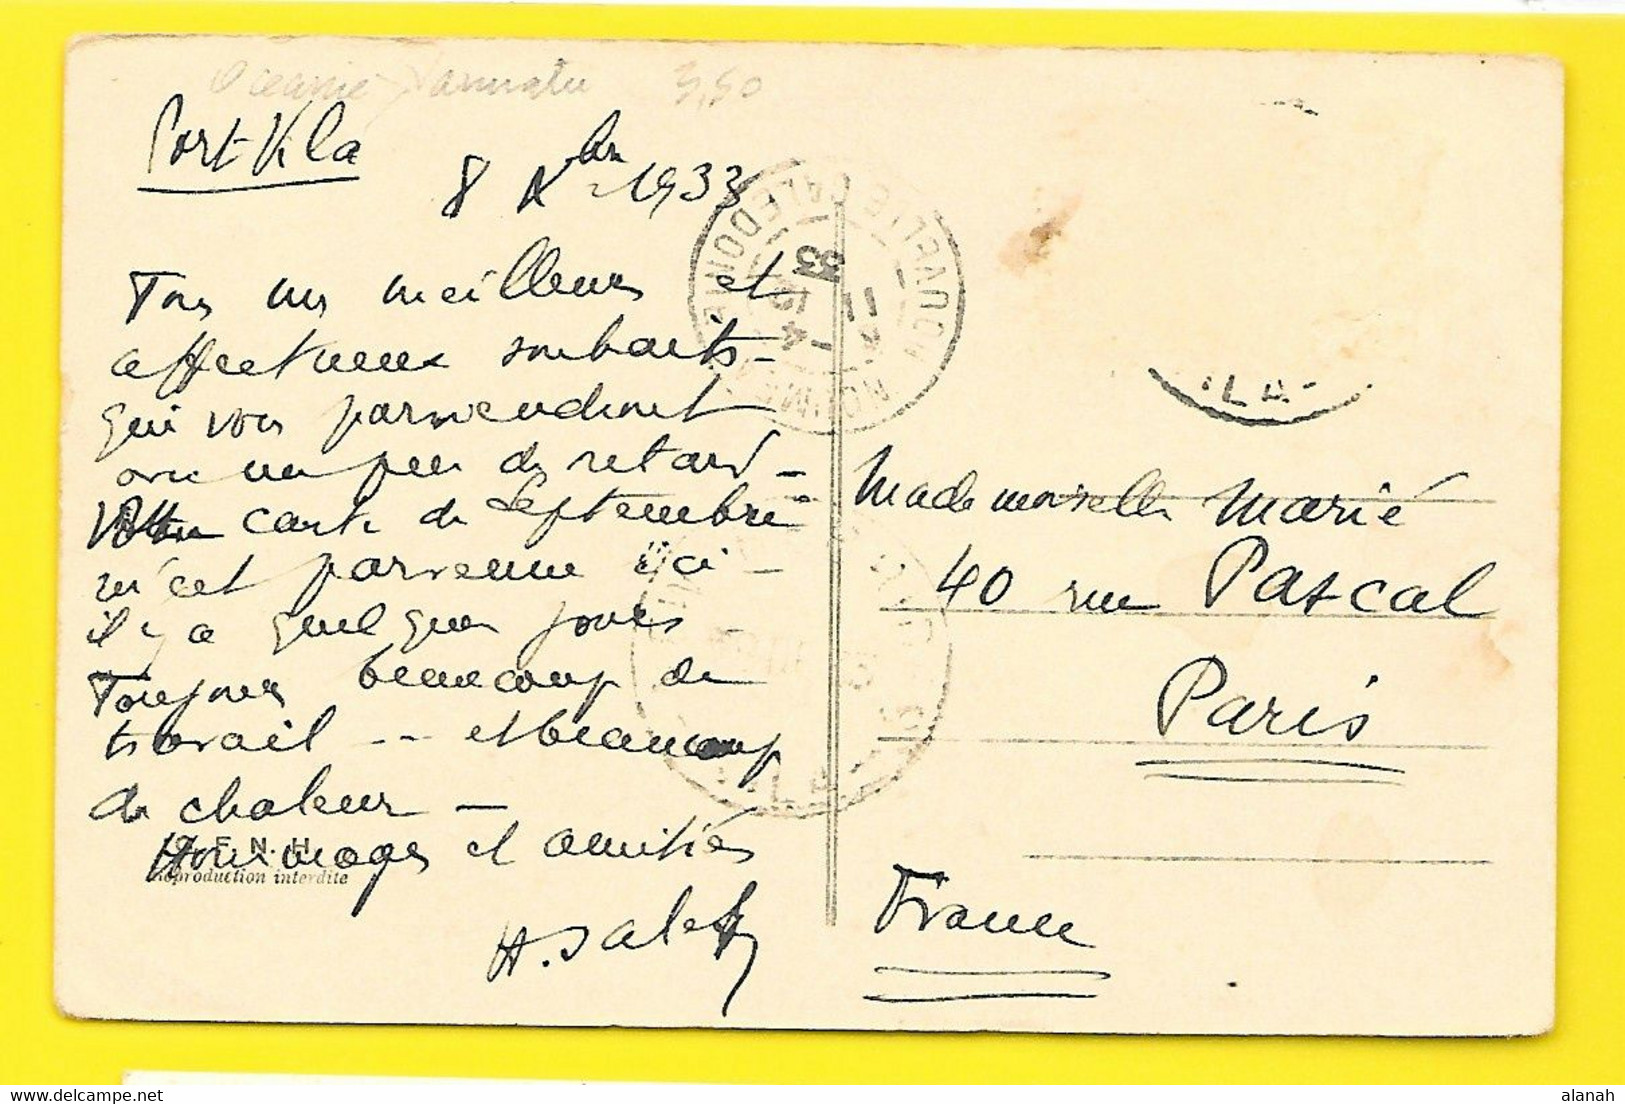 Oceanie Vanuatu 3,50
Port-Vila
8 Xbre 1933
Tous mes meilleurs et
affectueux souhaits -
qui vous parviendront
avec un peu de retard -
Votre carte de Septembre
m'est parvenue ici -
il y a quelques jours -
Toujours beaucoup de
travail -- et beaucoup
de chaleur -
Hommages et amitiés
F. N. H.
Reproduction interdite
NOUVELLE CALEDONIE
33
NOUMEA
ILA
Mademoiselle Marié
40 rue Pascal
Paris
France
alanah